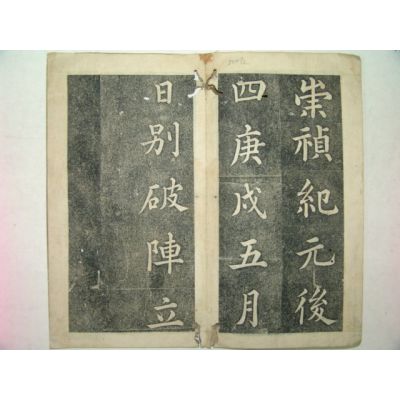 崇禎紀元後
四庚戌五月
日別破陣立